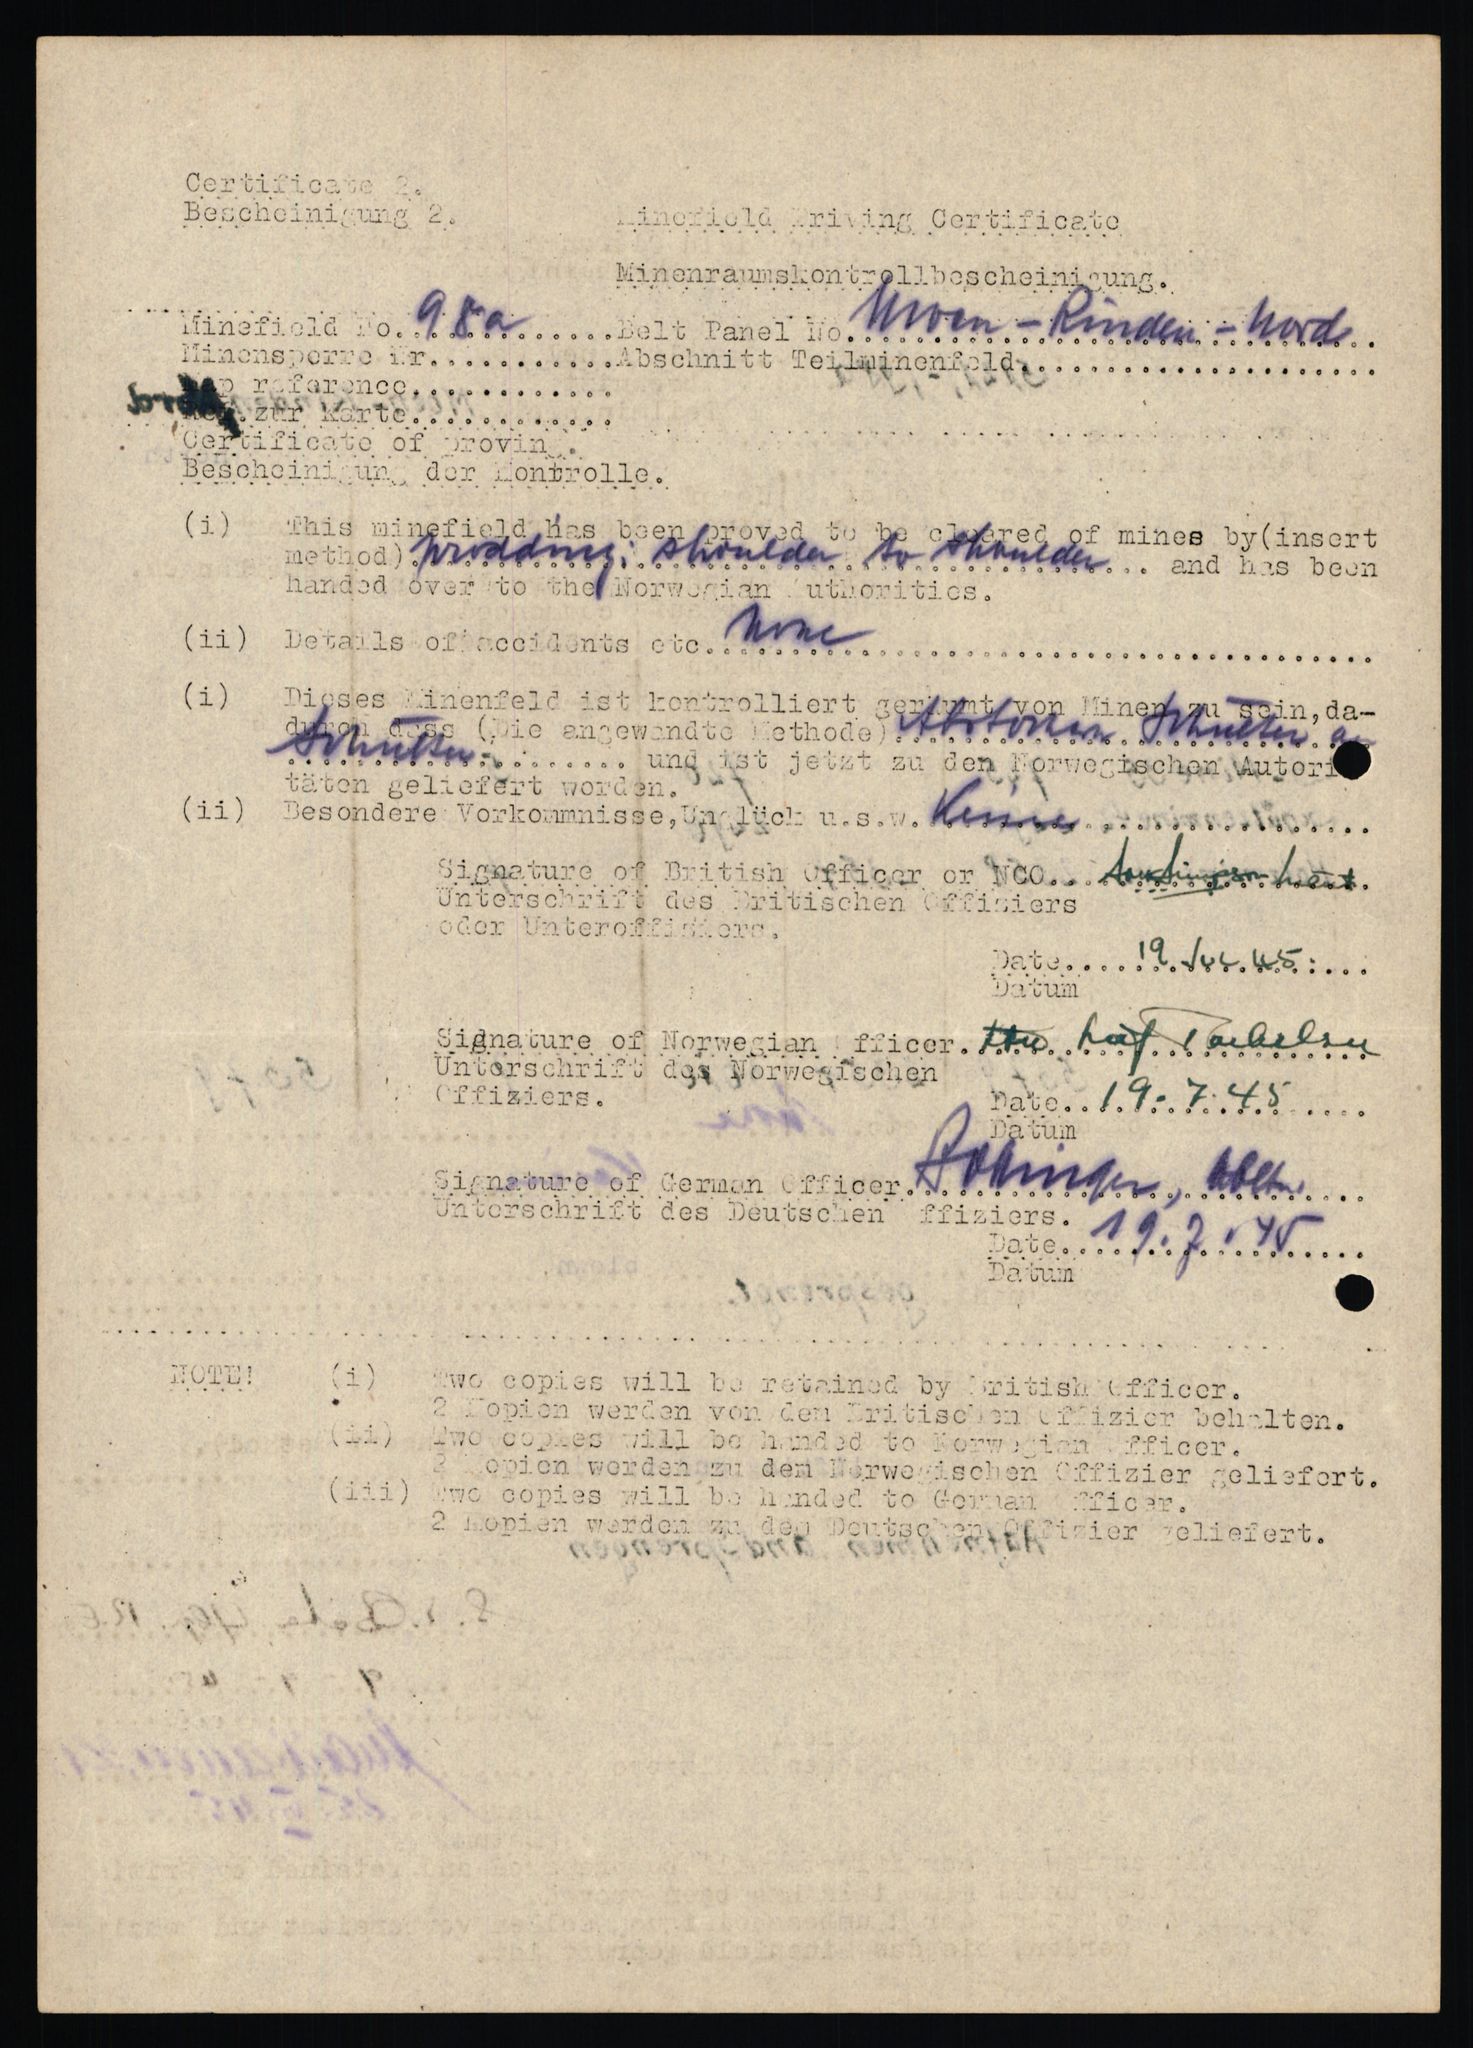 Certificate 2.
Bescheinigung 2. Minefield Driving Certificate
Minenraumskontrollbescheinigung.
Minefield No. 98a Belt Panel No. Moen - Rinden - Nord
Minensperre Nr. Abschnitt Teilminenfeld.
Map reference.
Bez. zur Karte.
Certificate of proving.
Bescheinigung der Kontrolle.
(i) This minefield has been proved to be cleared of mines by (insert
method) prodding: shoulder to shoulder and has been
handed over to the Norwegian Authorities.
(ii) Details of accidents etc. None
(i) Dieses Minenfeld ist kontrolliert geräumt von Minen zu sein, da-
durch dass (Die angewandte Methode) Schulter an
Schulter und ist jetzt zu den Norwegischen Autori
täten geliefert worden.
(ii) Besondere Vorkommnisse, Unglück u.s.w. Keine
Signature of British Officer or NCO.
Unterschrift des Britischen Offiziers
oder Unteroffiziers.
Date 19 Jul 45
Datum
Signature of Norwegian Officer.
Unterschrift des Norwegischen
Offiziers. Date 19.7.45
Datum
Signature of German Officer.
Unterschrift des Deutschen Offiziers.
Date 19.7.45
Datum
NOTE! (i) Two copies will be retained by British Officer.
2 Kopien werden von den Britischen Offizier behalten.
(ii) Two copies will be handed to Norwegian Officer.
2 Kopien werden zu dem Norwegischen Offizier geliefert.
(iii) Two copies will be handed to German Officer.
2 Kopien werden zu dem Deutschen Offizier geliefert.